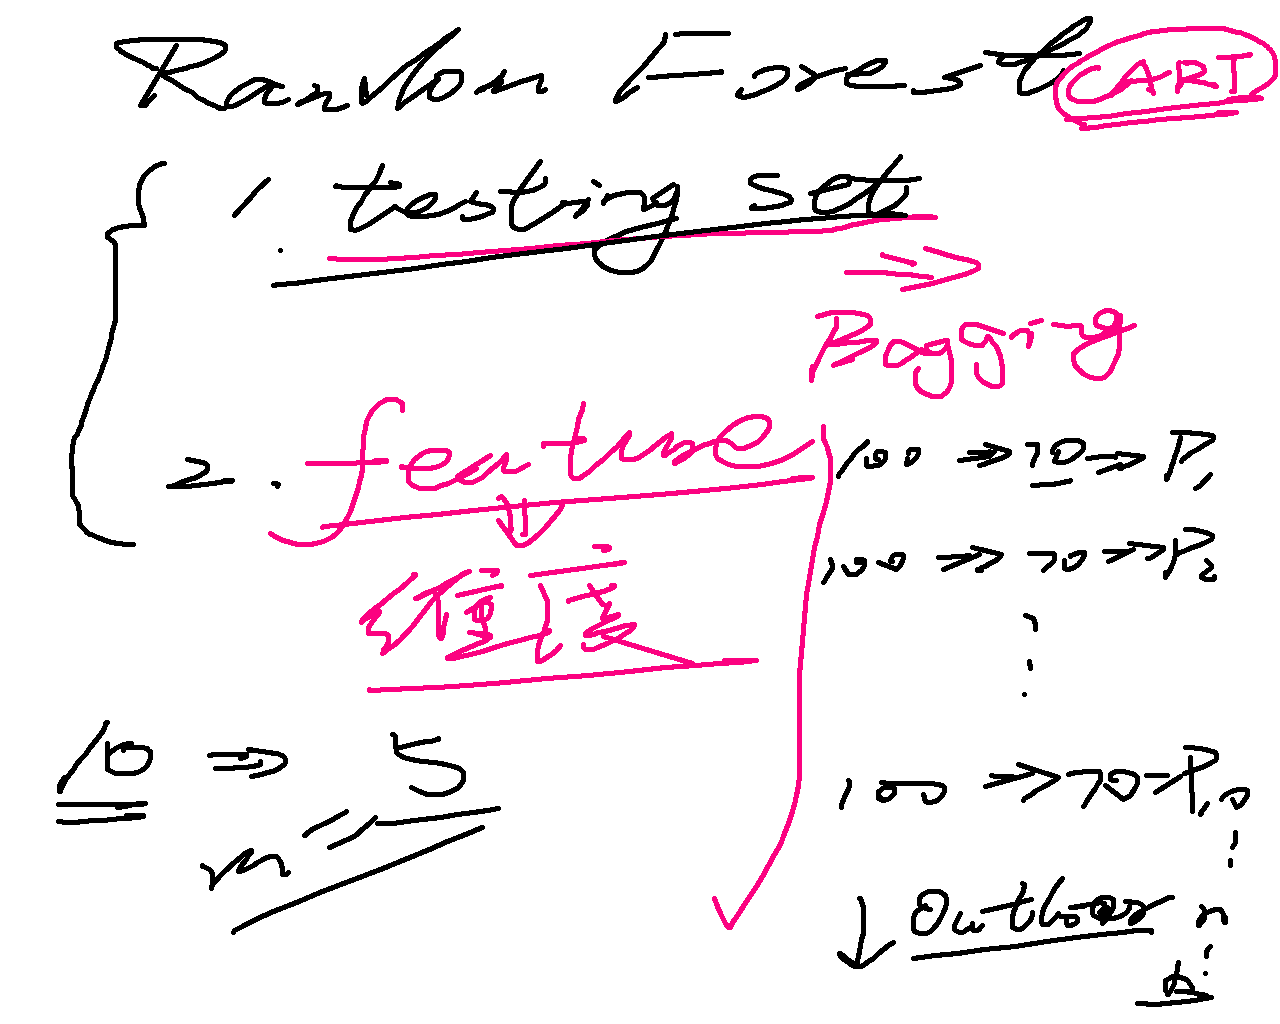 Random Forest CART
1. testing set
⇒
Bagging
2. feature
⇓
维度
100 → 70 → P1
100 → 70 → P2
⋮
100 → 70 - P10
⋮
10 ⇒ 5
m =
↓ n